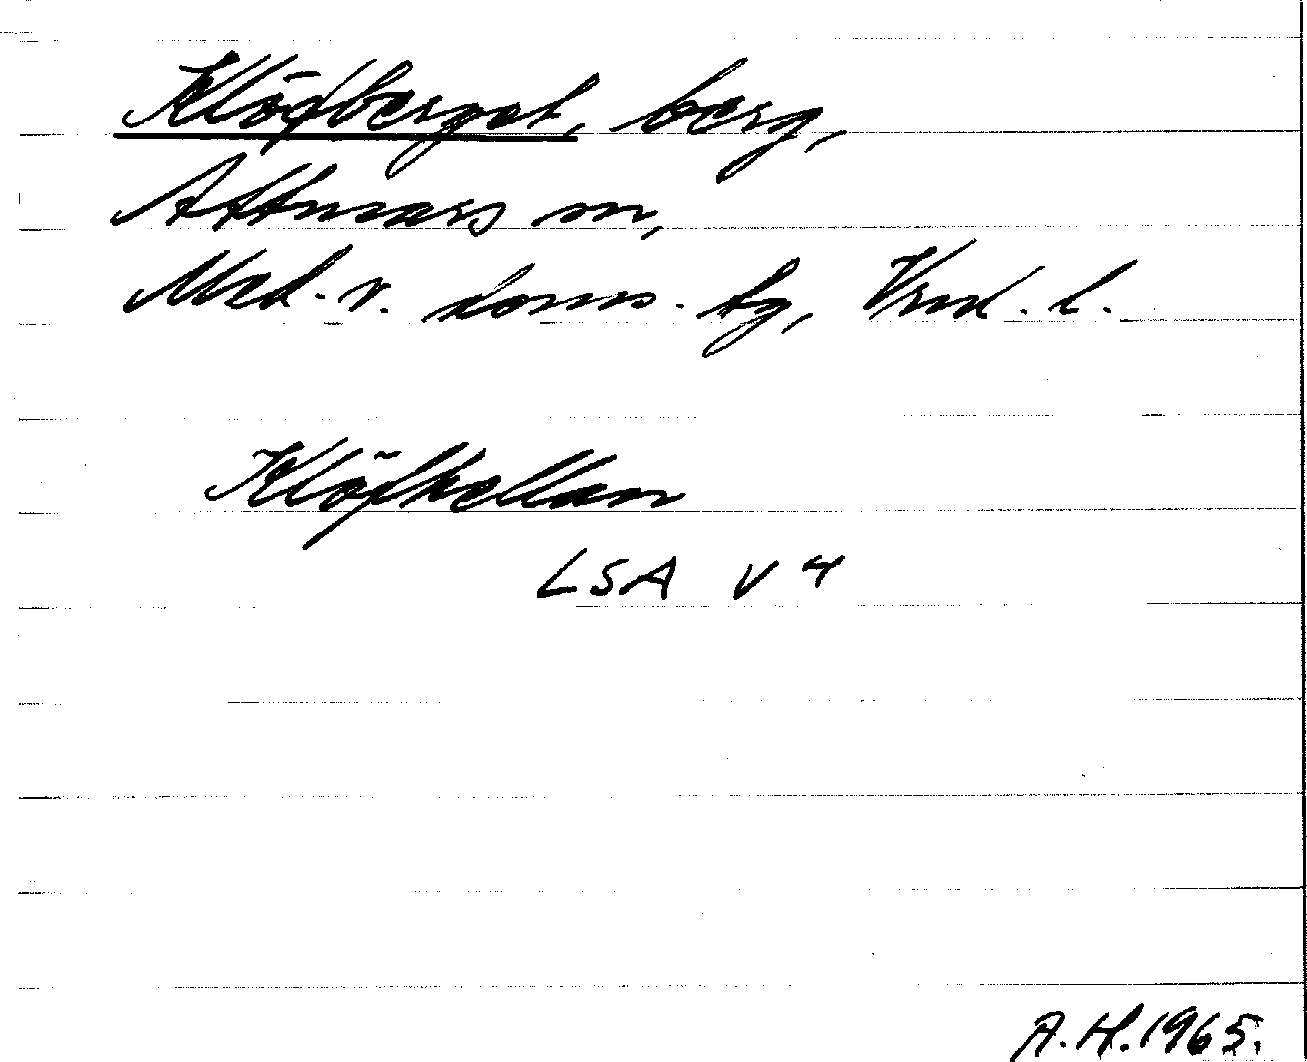 Klöfberget, berg,
Attmars sn,
Med. v. doms. tg, Vrnl. l.
Klöfhällan
LSA V 4
A.H. 1965.